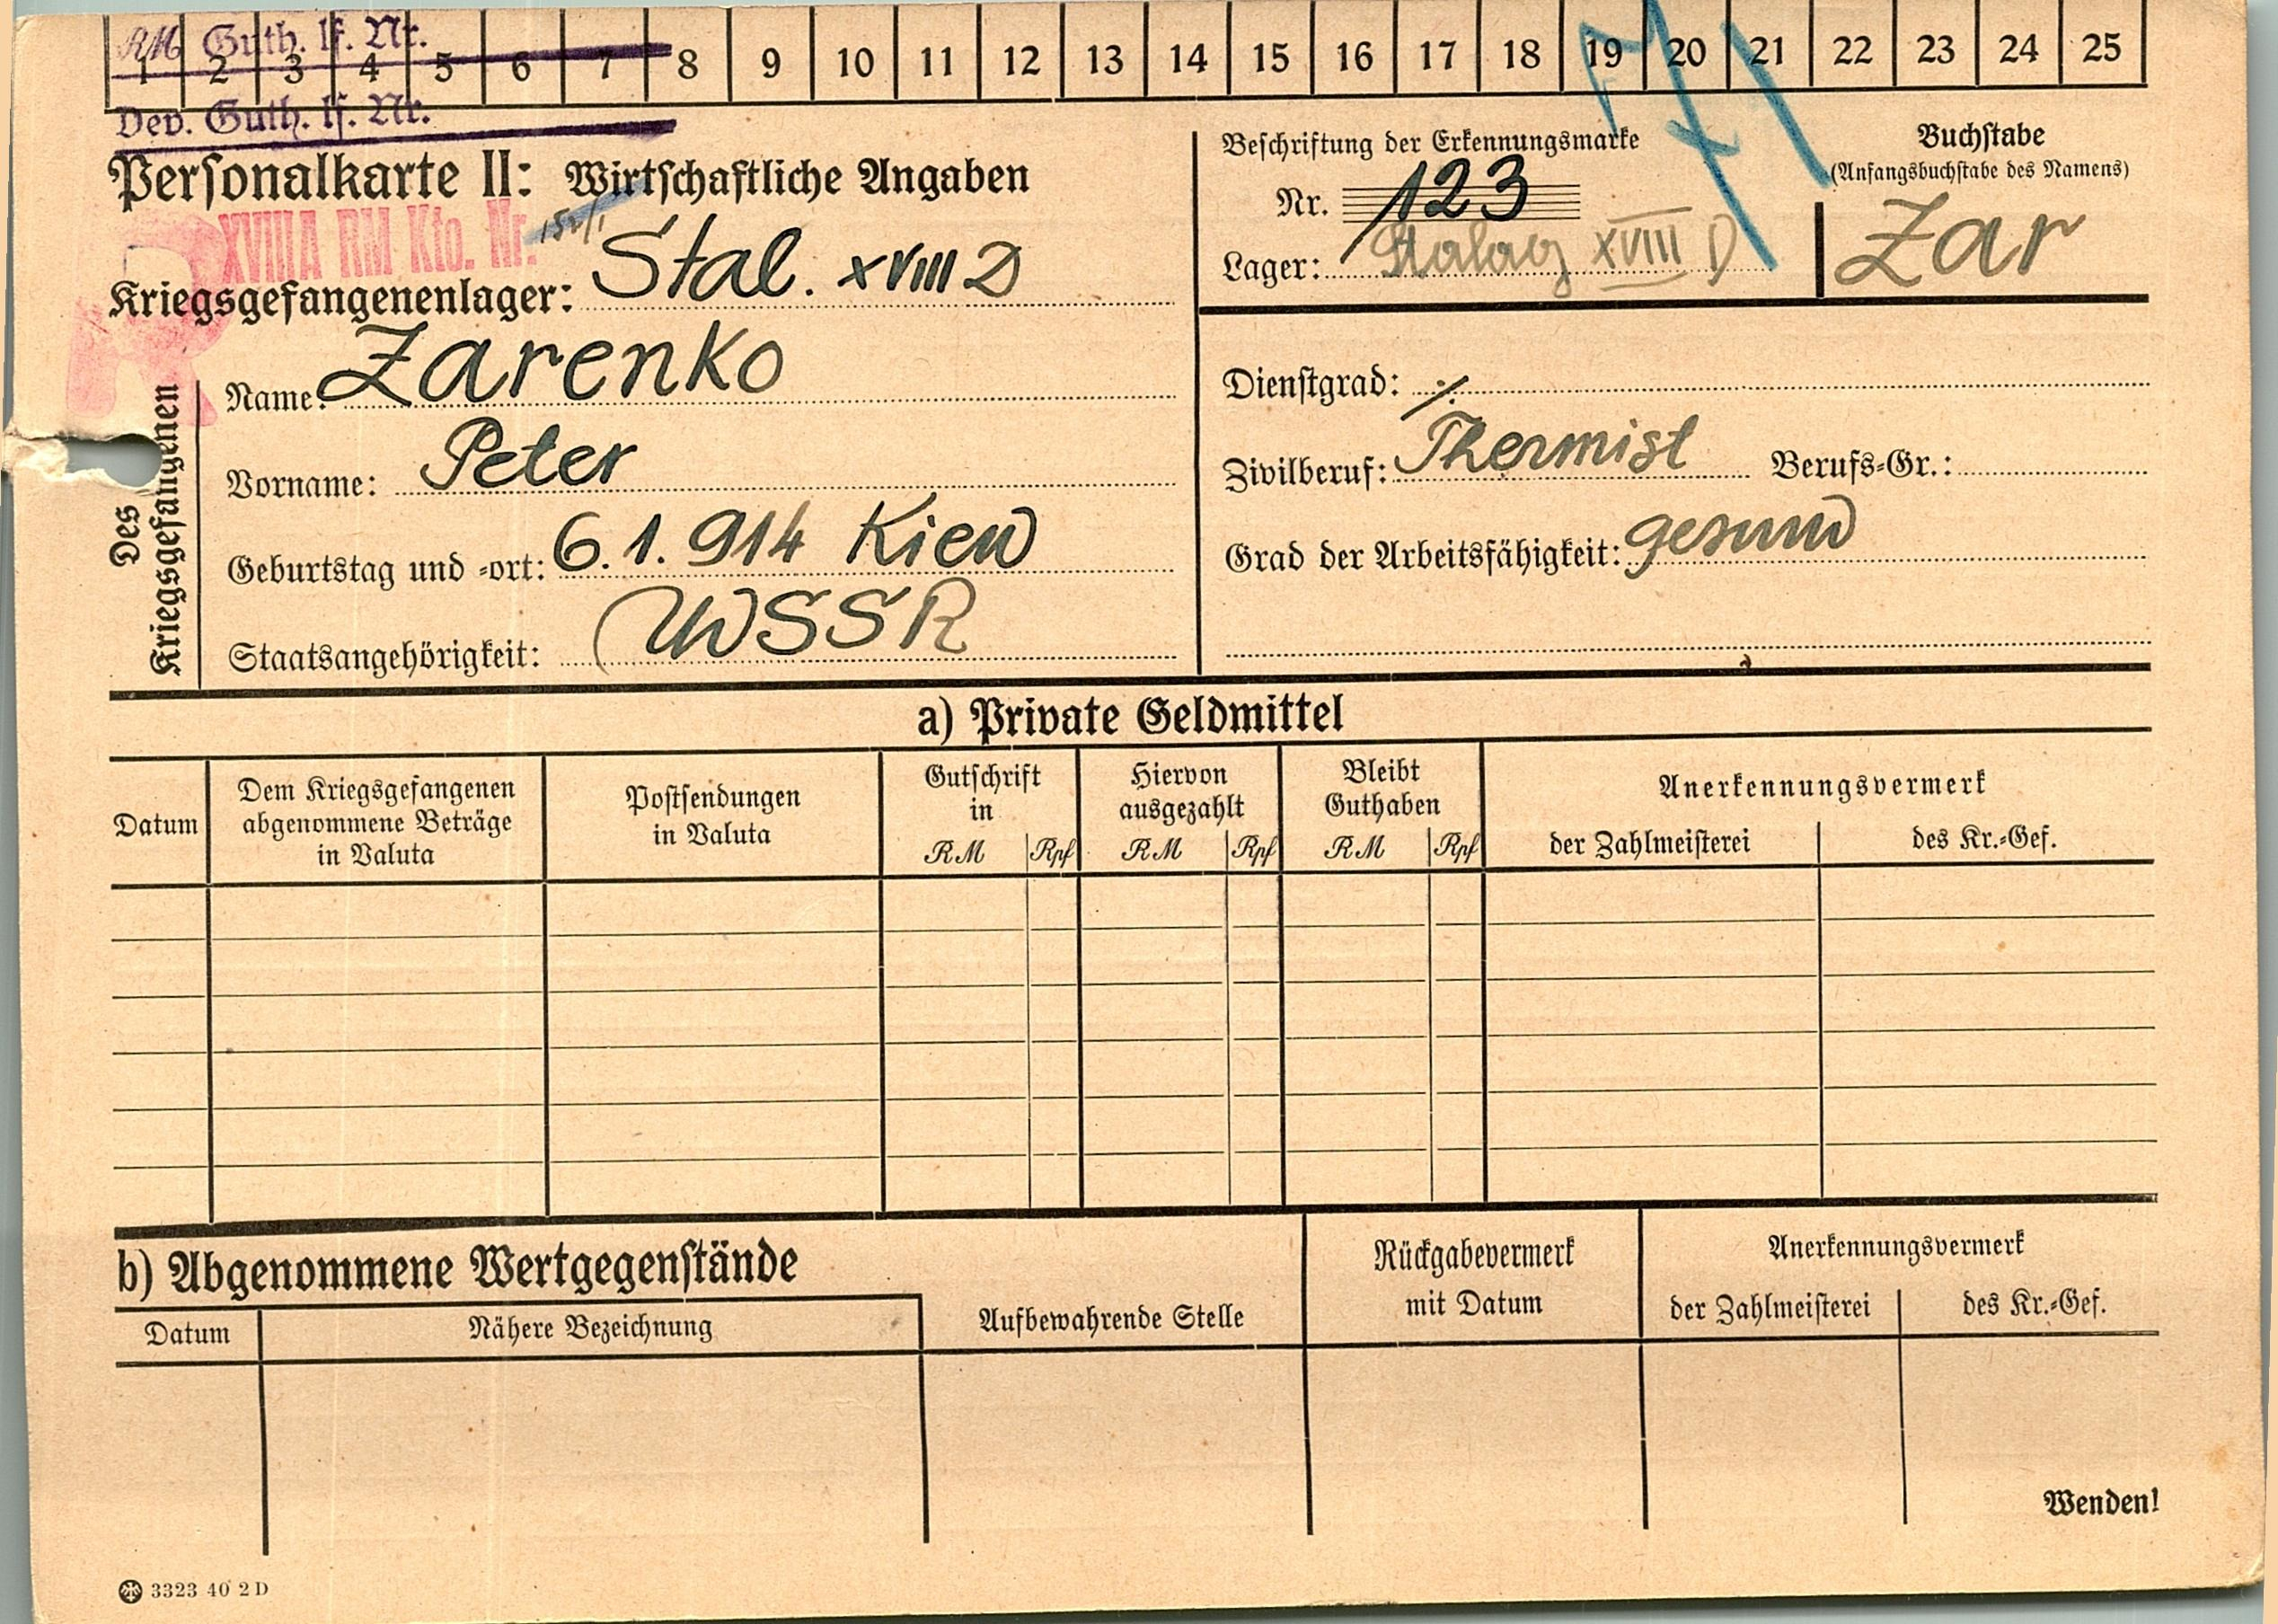 RM Guth. lf. Nr.
1 2 3 4 5 6 7 8 9 10 11 12 13 14 15 16 17 18 19 20 21 22 23 24 25
Dev. Guth. lf. Nr.
Personalkarte II: Wirtschaftliche Angaben
XVIII A RM Kto. Nr.
R
Kriegsgefangenenlager: Stal. XVIII D
Beschriftung der Erkennungsmarke
Nr. 123
Lager: Stalag XVIII D
Buchstabe
(Anfangsbuchstabe des Namens)
Zar
Des Kriegsgefangenen
Name: Zarenko
Vorname: Peter
Geburtstag und -ort: 6.1.914 Kiew
Staatsangehörigkeit: UWSSR
Dienstgrad: ./.
Zivilberuf: Thermist Berufs-Gr.:
Grad der Arbeitsfähigkeit: gesund
a) Private Geldmittel
Datum
Dem Kriegsgefangenen
abgenommene Beträge
in Valuta
Postsendungen
in Valuta
Gutschrift
in
RM Rpf
Hiervon
ausgezahlt
RM Rpf
Bleibt
Guthaben
RM Rpf
Anerkennungsvermerk
der Zahlmeisterei des Kr.-Gef.
b) Abgenommene Wertgegenstände
Datum Nähere Bezeichnung
Aufbewahrende Stelle
Rückgabevermerk
mit Datum
Anerkennungsvermerk
der Zahlmeisterei des Kr.-Gef.
Wenden!
3323 40 2 D